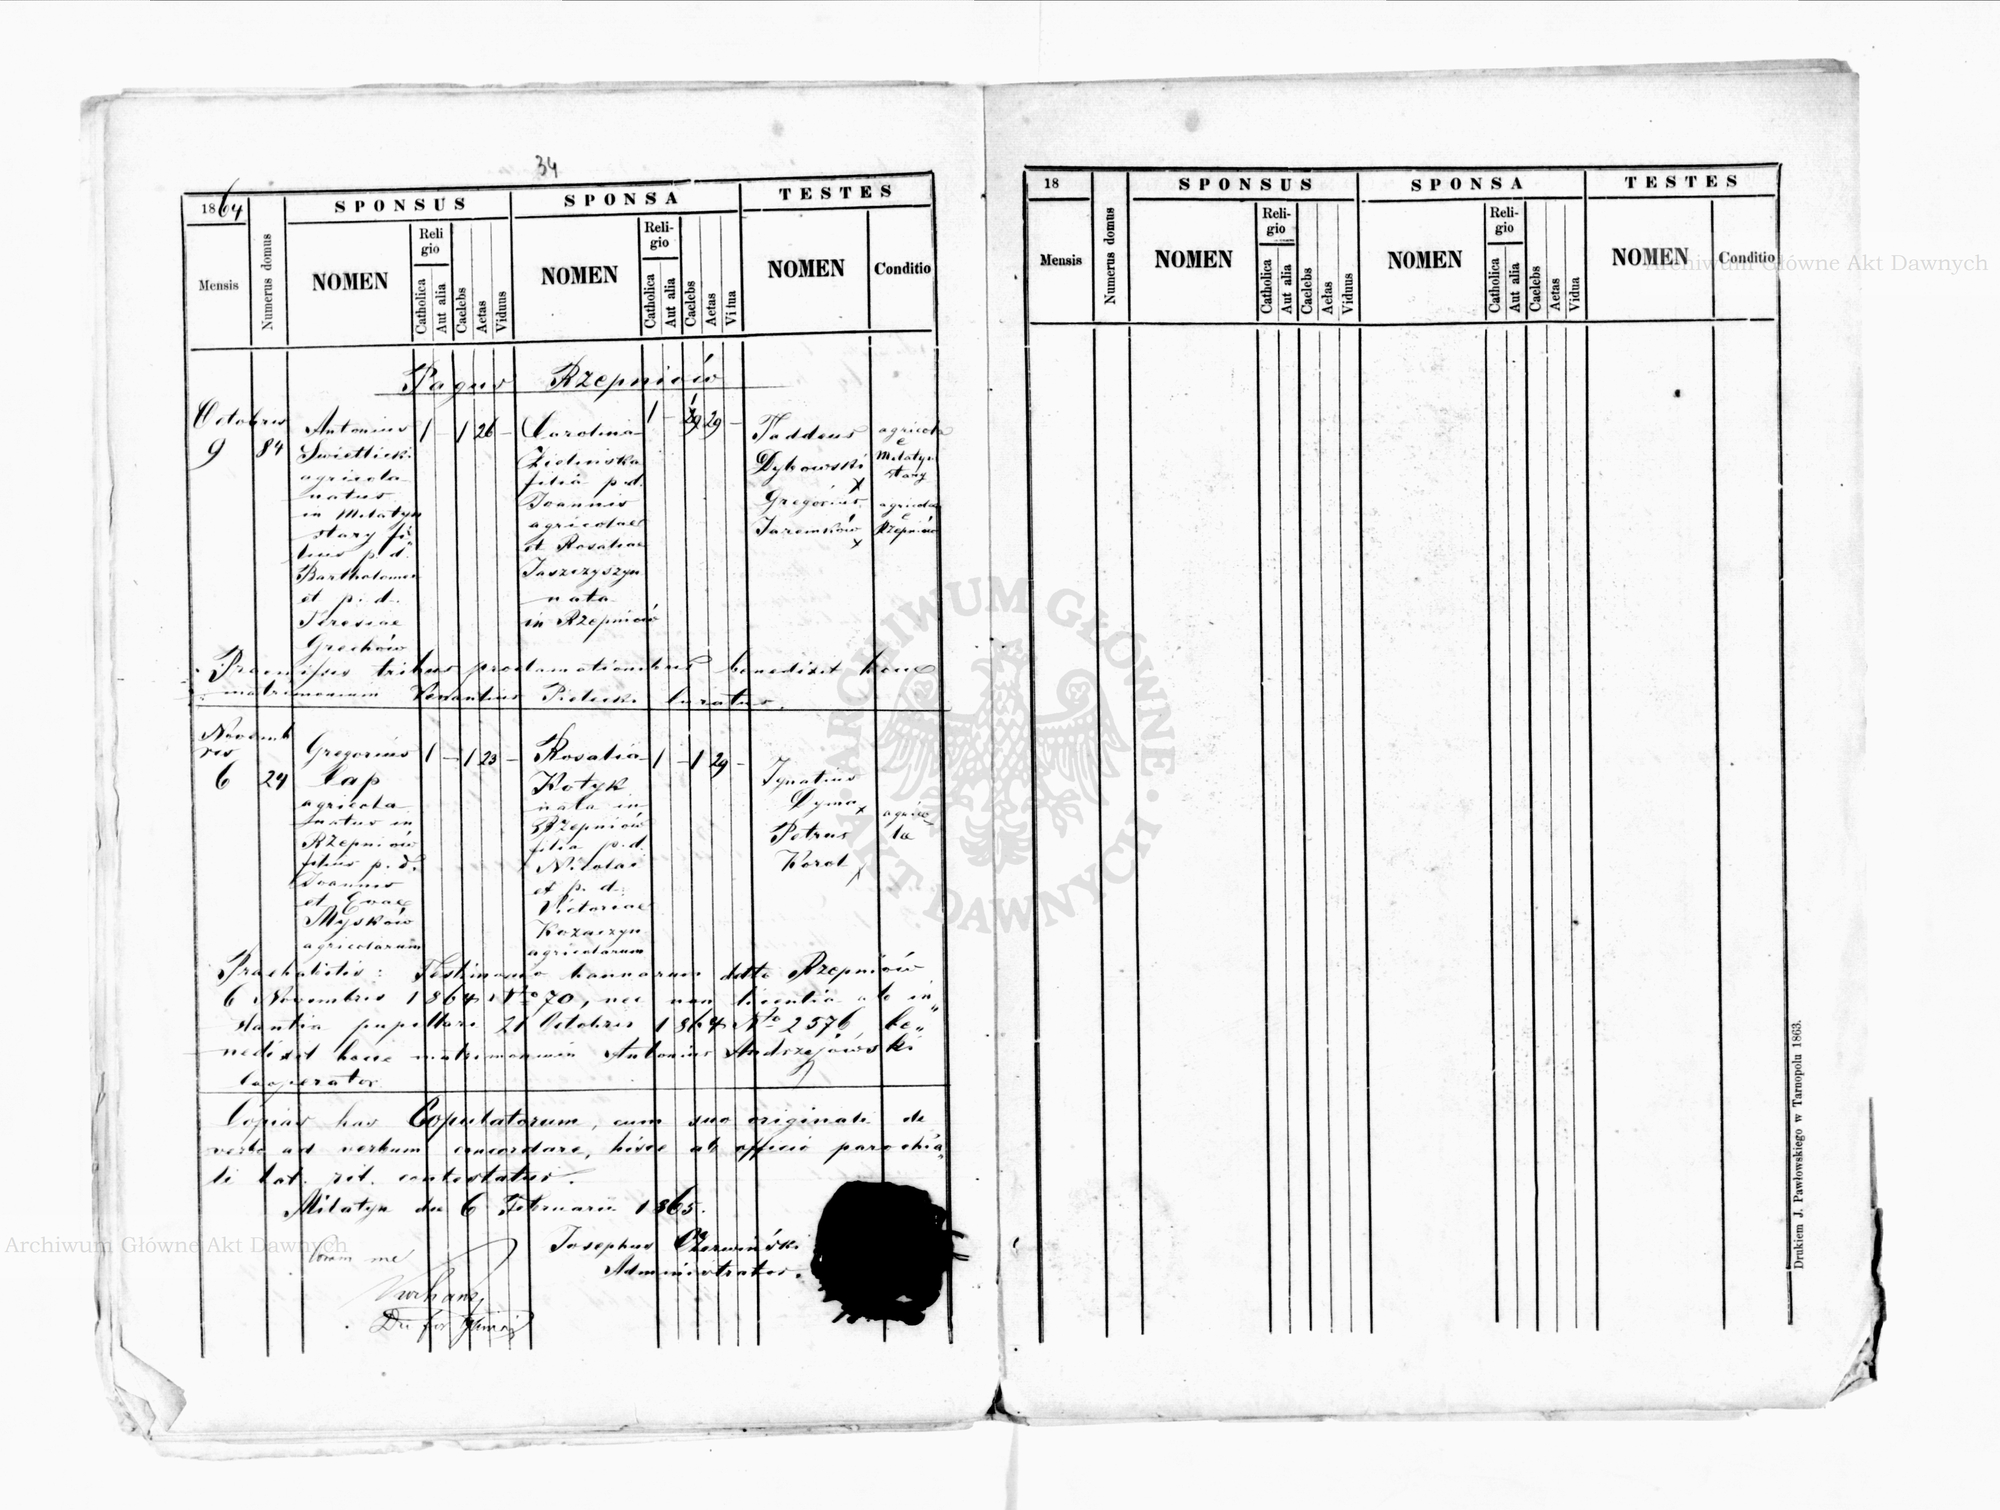 34
1864
SPONSUS
SPONSA
TESTES
Mensis
Numerus domus
NOMEN
Reli
gio
Catholica
Aut alia
Caelebs
Aetas
Viduus
NOMEN
Reli-
gio
Catholica
Aut alia
Caelebs
Aetas
Vidua
NOMEN
Conditio
Pagus Rzepniów
Octobris
9
84
Antonius
Swietlicki
agricola
natus
in Milatyn
stary fi„
lius p. d.
Bartholomei
et p. d.
Teresiae
Grechów
1 – 1 26 –
Carolina
Zielinska
filia p. d.
Joannis
agricolae
et Rosaliae
Jaszczyszyn
nata
in Rzepniów
1 – 1 29 –
Taddeus
Dykowski
x
Gregorius
Jaremków
x
agricola
e
Milatyn
stary
agricola
e
Rzepniów
Praemissis tribus proclamationibus benedixit hocce
matrimonium Venantius Pielecki Curatus.
Novemb
ris
6
24
Gregorius
Cap
agricola
natus in
Rzepniów
filius p. d.
Joannis
et Evae
Mysków
agricolarum
1 – 1 23 –
Rosalia
Kotyk
nata in
Rzepniów
filia p. d.
Nicolai
et p. d.
Victoriae
Kozaczyn
agricolarum
1 – 1 29 –
Ignatius
Dyma x
Petrus
Korol
x
agrico
lae
Praehabitis: Testimonio bannorum ddto Rzepniów
6 Novembris 1864 Nto 70, nec non licentia ab in„
stantia pupillari 21 Octobris 1864 Nto 2576, be„
nedixit hocce matrimonium Antonius Andrzejowski
Cooperator
Copias has Copulatorum, cum suo originali de
verbo ad verbum concordare, hisce ab officio parochia„
li lat. rit. contestatur.
Milatyn die 6 Februarii 1865.
Josephus Czerwiński
Administrator.
Coram me
18
SPONSUS
SPONSA
TESTES
Mensis
Numerus domus
NOMEN
Reli-
gio
Catholica
Aut alia
Caelebs
Aetas
Viduus
NOMEN
Reli-
gio
Catholica
Aut alia
Caelebs
Aetas
Vidua
NOMEN
Conditio
Drukiem J. Pawłowskiego w Tarnopolu 1863.
ARCHIWUM GŁÓWNE
AKT DAWNYCH
Archiwum Główne Akt Dawnych
Archiwum Główne Akt Dawnych